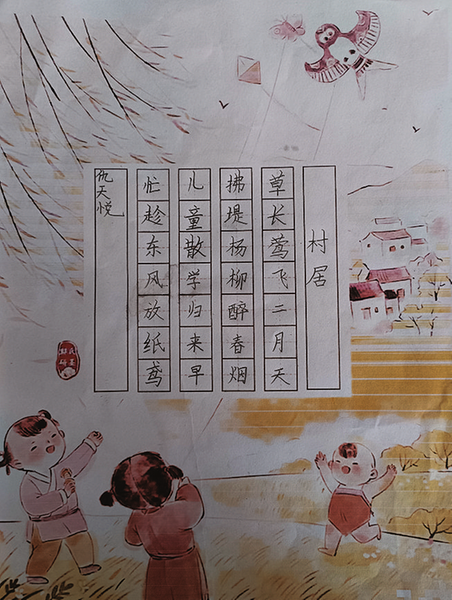 村居
草长莺飞二月天
拂堤杨柳醉春烟
儿童散学归来早
忙趁东风放纸鸢
仇天悦